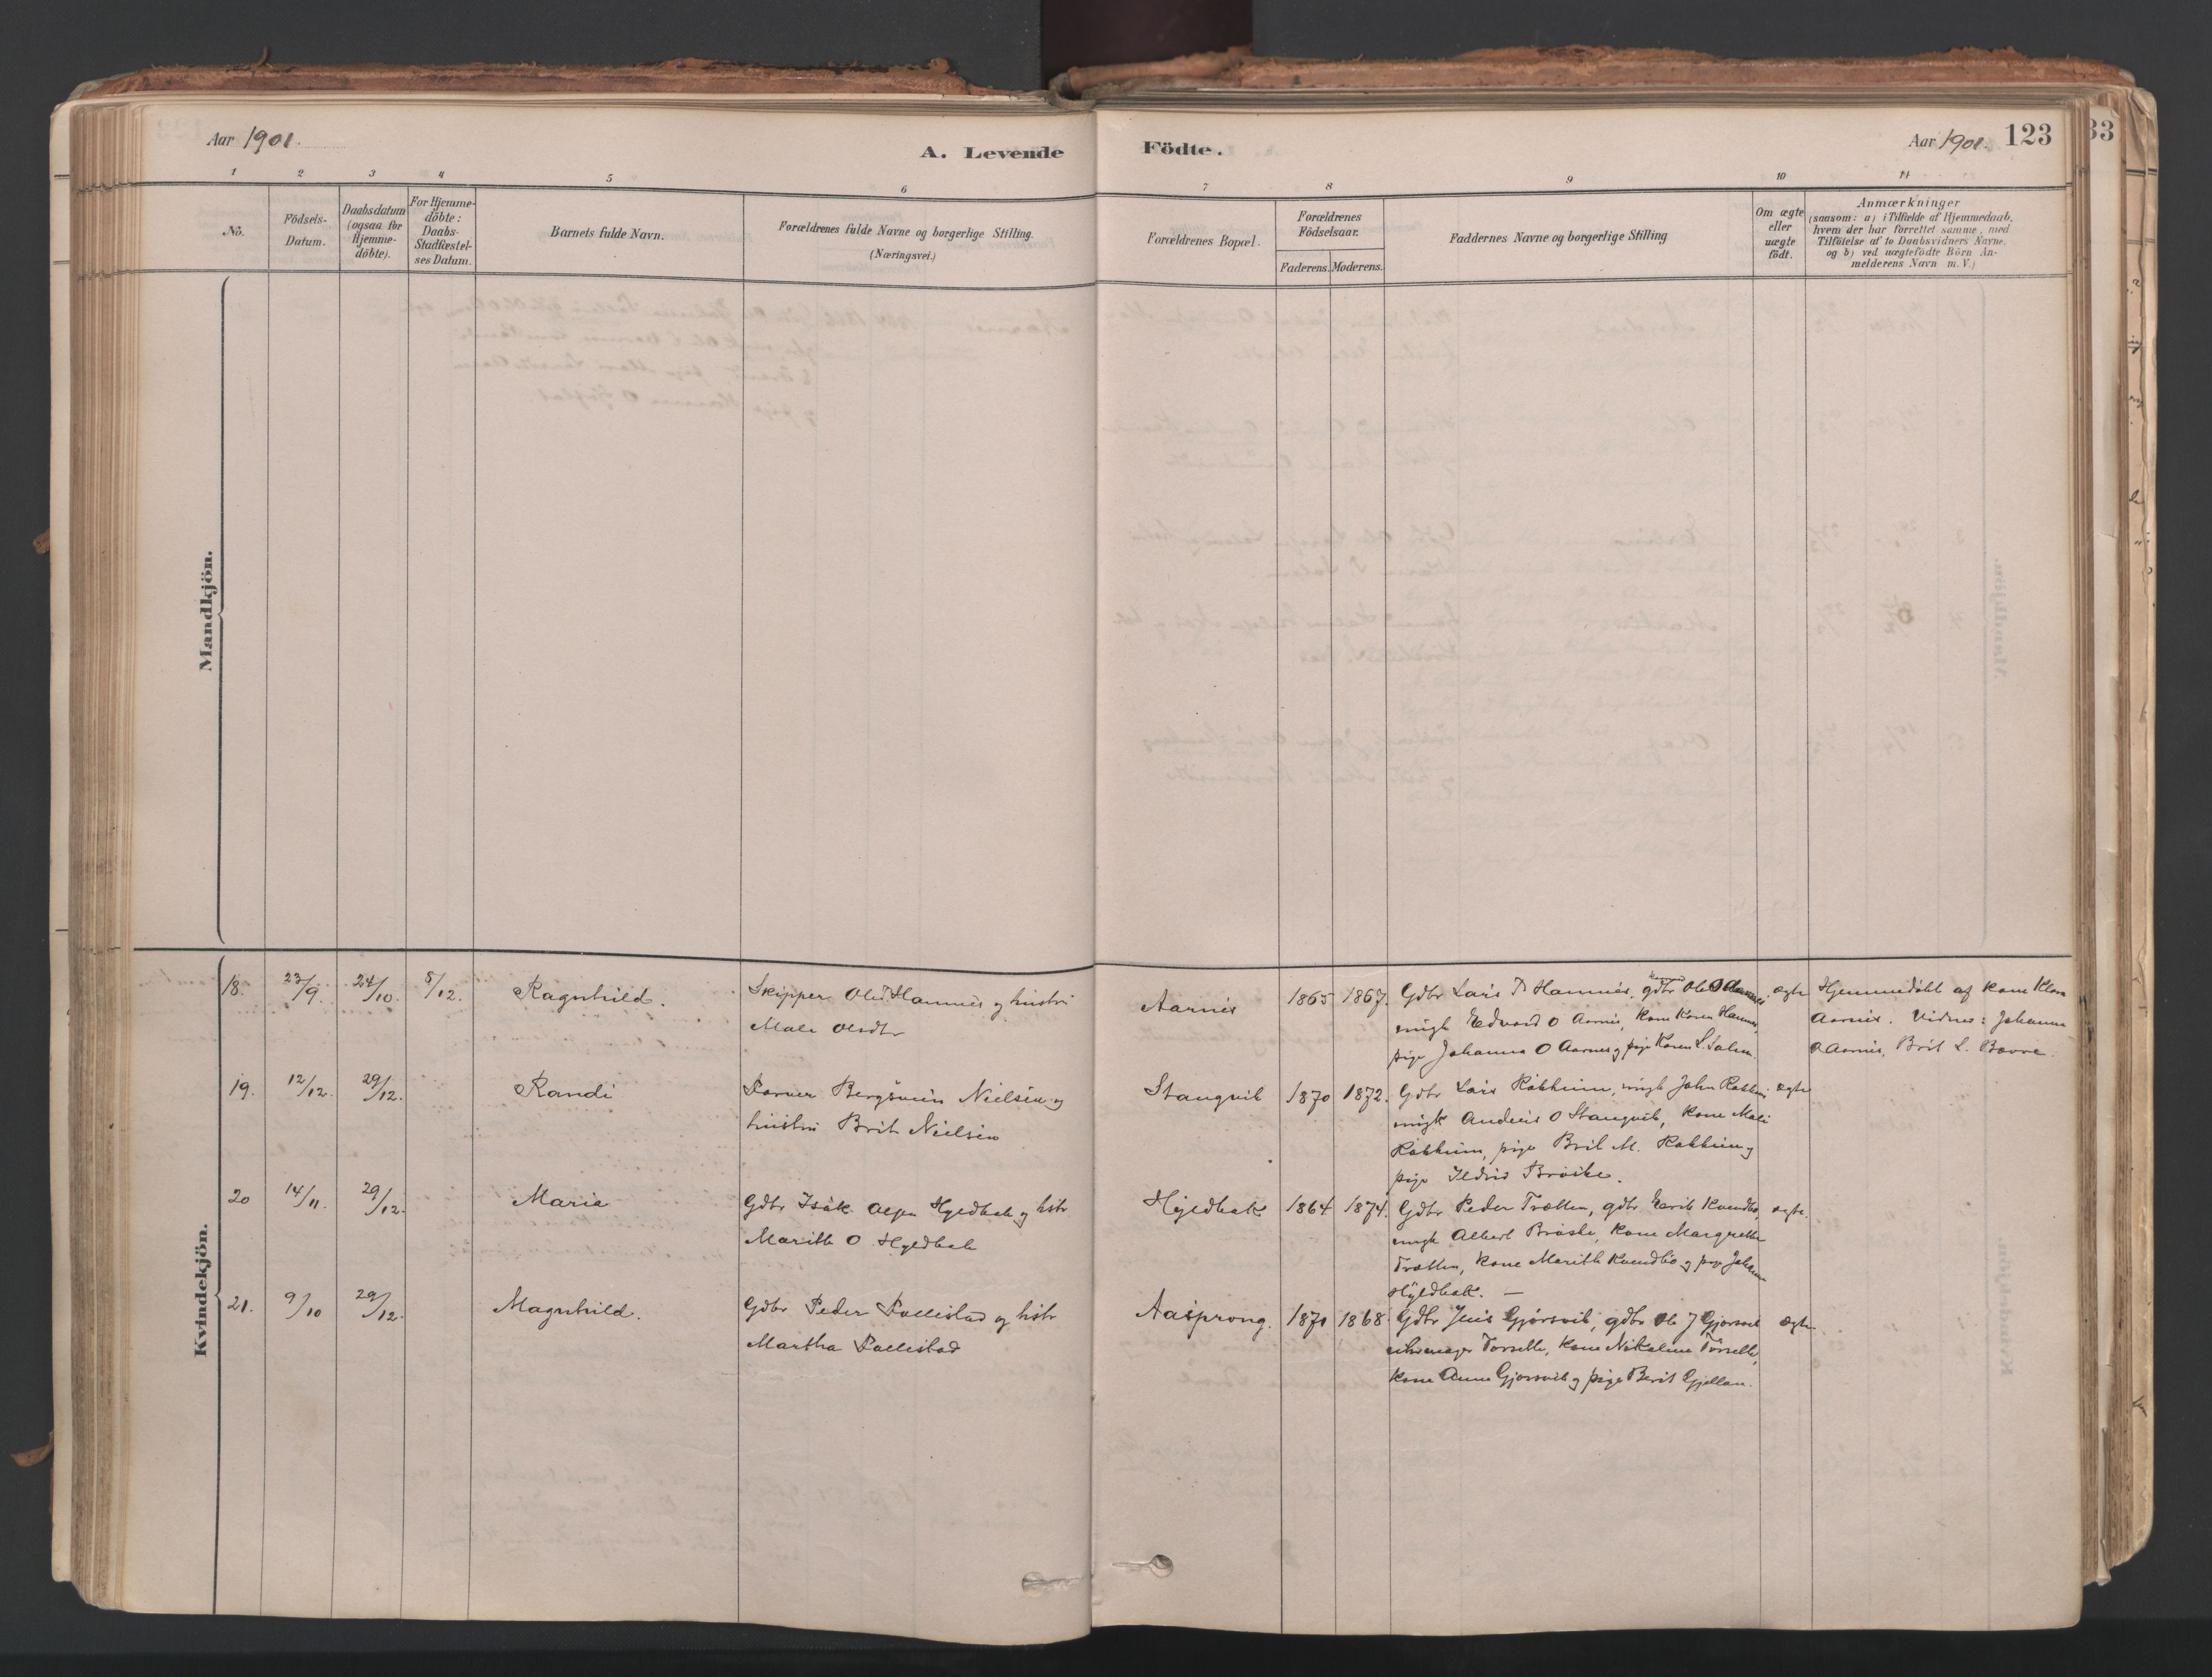 Aar 1901.
A. Levende
Födte.
Aar 1901. 123
33
1 2 3 4 5 6 7 8 9 10 11
No.
Födsels-
Datum.
Daabsdatum
(ogsaa for
Hjemme-
döbte).
For Hjemme-
döbte:
Daabs-
Stadfæstel-
ses Datum.
Barnets fulde Navn.
Forældrenes fulde Navne og borgerlige Stilling.
(Næringsvei.)
Forældrenes Bopæl.
Forældrenes
Födselsaar.
Faderens. Moderens.
Faddernes Navne og borgerlige Stilling
Om ægte
eller
uægte
födt.
Anmærkninger
(saasom: a) i Tilfælde af Hjemmedaab,
hvem der har forrettet samme, med
Tilföielse af to Daabsvidners Navne,
og b) ved uægtefödte Börn An-
melderens Navn m. V.)
Mandkjön.
Kvindekjön.
18. 23/9. 24/10. 8/12. Ragnhild.
Skipper Hamnes og hustru
Mali Olsdtr
Aarnes 1865 1867.
Gdbr Lars Hamnes, gdbr Ole
ungk Edvard O Aarnes, kone Karen Hamnes,
pige Johanna O Aarnes og pige Karen L. Salen.
ægte
Hjemmedöbt af kone
Aarnes. Vidner: Johanna
O Aarnes, Brit L. Bævre.
19. 12/12. 29/12. Randi
Farver Bergsvein Nielsen og
hustru Brit Nielsen
Stangvik 1870 1872.
Gdbr Lars Røkkum, ungk John
ungk Anders O Stangvik, kone Mali
Røkkum, pige Brit M. Røkkum og
pige Ildrid Brøske.
ægte
20 14/11. 29/12. Marie
Gdbr Isak Hyldbak og hstr
Marith O. Hyldbak
Hyldbak 1864 1874.
Gdbr Peder Trætten, gdbr Kvendbø,
ungk Albert Brøske, kone Margrethe
Trætten, kone Marith Kvendbø og pige
Hyldbak. —
ægte.
21. 9/10 29/12. Magnhild.
Gdbr Peder og hstr
Martha
Aasprong. 1870 1868
Gdbr Jens Gjørsvik, gdbr Ole J Gjørsvik
kone Nikoline
kone Anne Gjørsvik og pige Berit
ægte